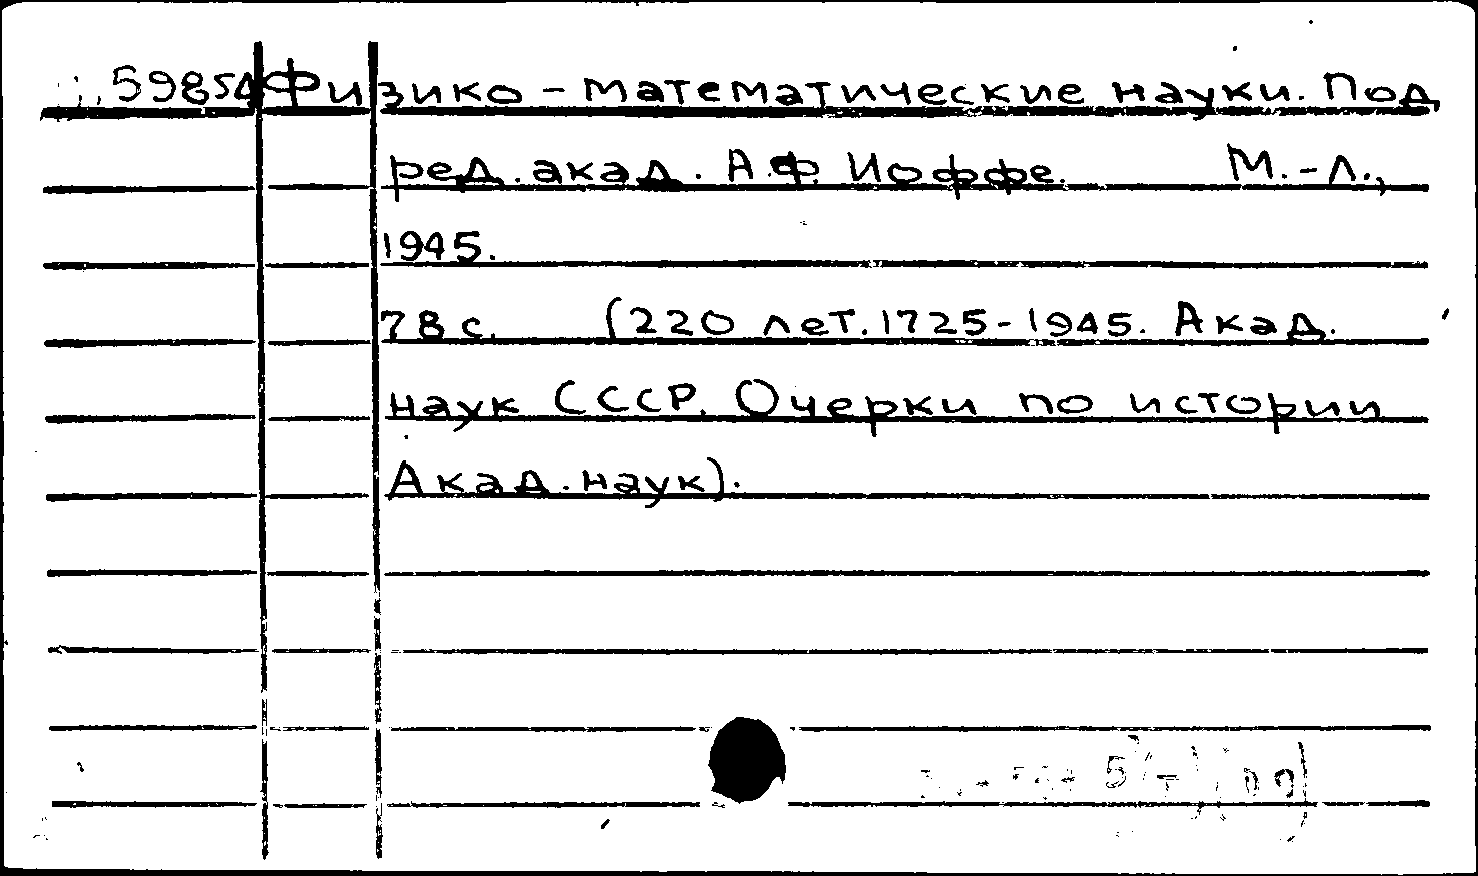 59854 Физико-математические науки. Под
ред. акад. А.Ф. Иоффе. М.-Л.,
1945.
78 с. (220 лет. 1725-1945. Акад.
наук СССР. Очерки по истории
Акад. наук).